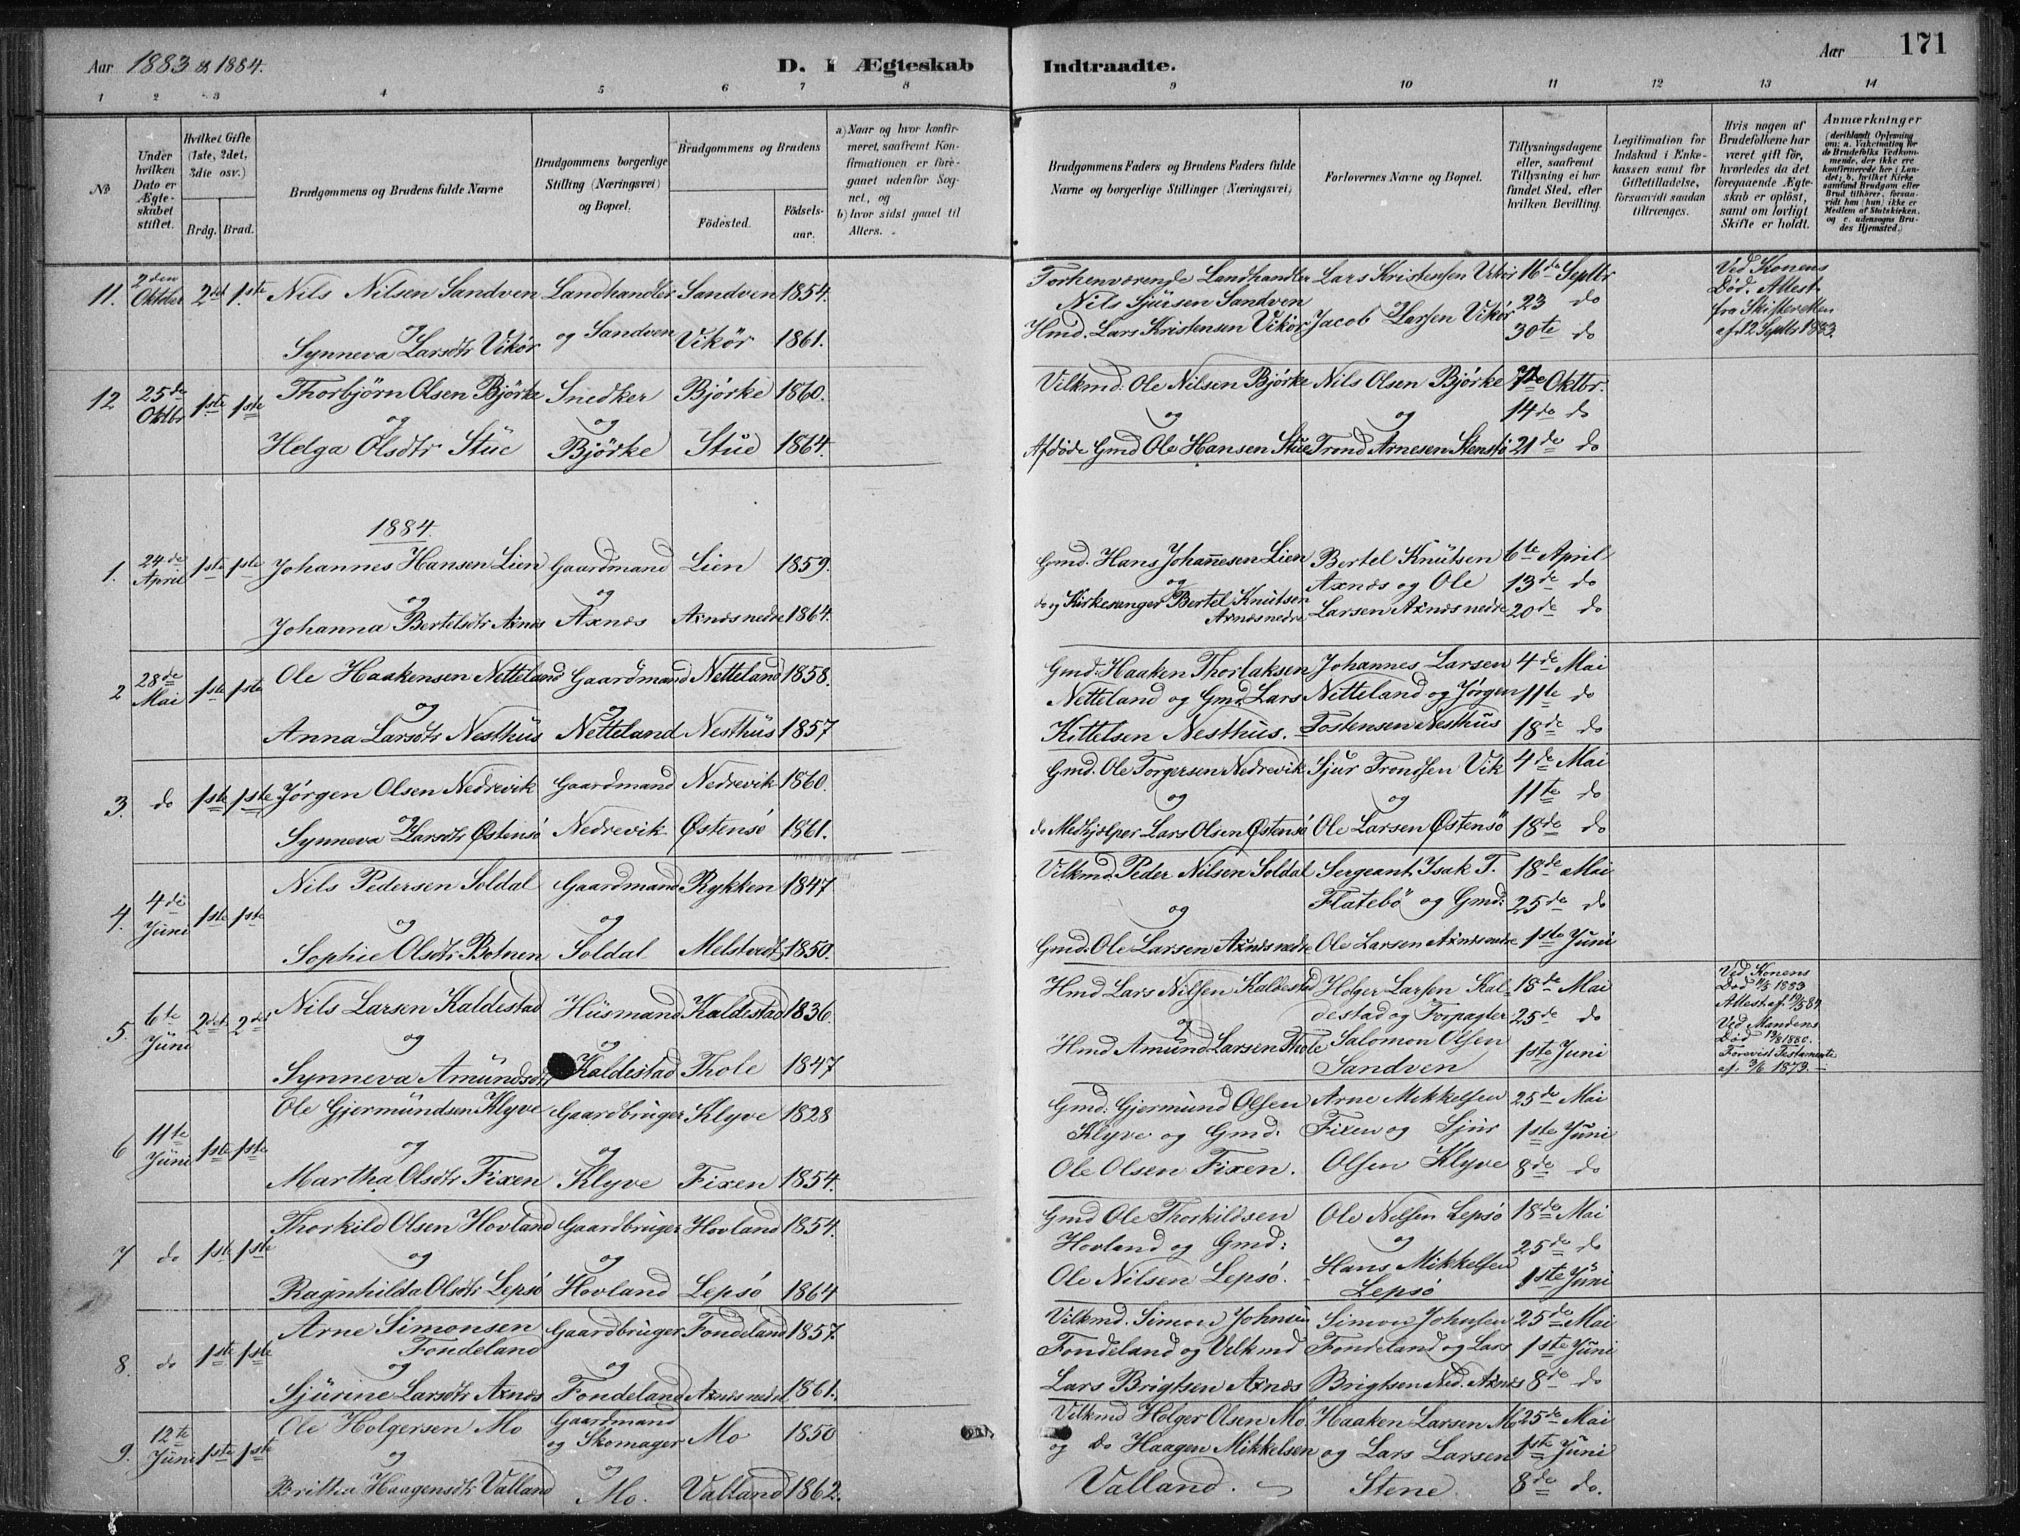 Aar 1883 & 1884.
D. I Ægteskab Indtraadte.
Aar 171
1 2 3 4 5 6 7 8 9 10 11 12 13 14
No
Under hvilken Dato er Ægteskabet stiftet.
Hvilket Gifte (1ste, 2det, 3die osv.)
Brdg. Brud.
Brudgommens og Brudens fulde Navne
Brudgommens borgerlige Stilling (Næringsvei) og Bopæl.
Brudgommens og Brudens
Födested. Födselsaar.
a) Naar og hvor konfirmeret, saafremt Konfirmationen er foregaaet udenfor Sognet, og
b) hvor sidst gaaet til Alters.
Brudgommens Faders og Brudens Faders fulde Navne og borgerlige Stillinger (Næringsvei)
Forlovernes Navne og Bopæl.
Tillysningsdagene eller, saafremt Tillysning ei har fundet Sted, efter hvilken Bevilling.
Legitimation for Indskud i Enkekassen samt for Giftetilladelse, forsaavidt saadan tiltrænges.
Hvis nogen af Brudefolkene har været gift för, hvorledes da det foregaaende Ægteskab er oplöst, samt om lovligt Skifte er holdt.
Anmærkninger
(deriblandt Oplysning om: a. Vaccination for de Brudefolks Vedkommende, der ikke ere konfirmerede her i Landet; b. hvilket Kirkesamfund Brudgom eller Brud tilhörer, forsaavidt han (hun) ikke er Medlem af Statskirken, og c. udensogns Brudes Hjemsted.)
11. 2den Oktober 2det 1ste Nils Nilsen Sandven Landhandler Sandven 1854. Forhenværende Landhandler Lars Kristensen Vikör 16de Septbr Ved Konens
Nils Sjursen Sandven 23 do Död. Attest
og og Sandven Hmd. Lars Kristensen Vikör Jacob Larsen Vikör 30te do fra Skifteretten
Synneva Larsdtr Vikör Vikör 1861. af 12 Septbr 1883.
12 25de Oktbr 1ste 1ste Thorbjörn Olsen Björke Snedker Björke 1860. Velkmd. Ole Nilsen Björke Nils Olsen Björke 7de Oktbr.
og og og og 14de do
Helga Olsdtr Stue Björke Stue 1864. Afdöde Gmd Ole Hansen Stue Trond Arnesen Stensö 21de do
1884.
1. 24de April 1ste 1ste Johannes Hansen Lien Gaardmand Lien 1859. Gmd. Hans Johannesen Lien Bertel Knutsen 6te April
og og og Axnæs og Ole 13de do
Johanna Bertelsdtr Axnæs Axnæs Axnæs nedre 1864. do og Kirkesanger Bertel Knutsen Axnæs nedre Larsen Axnæs nedre 20de do
2 28de Mai 1ste 1ste Ole Haakensen Netteland Gaardmand Netteland 1858. Gmd. Haaken Thorlaksen Johannes Larsen 4de Mai
og og Netteland og Gmd. Lars Netteland og Jørgen 11te do
Anna Larsdtr Nesthus Netteland Nesthus 1857 Kittelsen Nesthus. Tostensen Nesthus 18de do
3. do 1ste 1ste Jørgen Olsen Nedrevik Gaardmand Nedrevik 1860. Gmd. Ole Torgersen Nedrevik Sjur Trondsen Vik 4de Mai
og og og 11te do
Synneva Larsdtr Østensö Nedrevik Østensö 1861. do Medhjælper Lars Olsen Østensö Ole Larsen Østensö 18de do
4. 4de Juni 1ste 1ste Nils Pedersen Soldal Gaardmand Rykken 1847 Velkmd. Peder Nilsen Soldal Sergeant Isak T. 18de Mai
og og og Flatebö og Gmd: 25de do
Sophie Olsdtr Botnen Soldal Melstvedt 1850. Gmd. Ole Larsen Axnæs nedre Ole Larsen Axnæs nedre 1ste Juni
5. 6te Juni 2det 2det Nils Larsen Kaldestad Husmand Kaldestad 1836. Hmd Lars Nilsen Kaldestad Holger Larsen Kal- 18de Mai Ved Konens Död 1883
og og og destad og Forpagter 25de do Attest af
Synneva Amundsdtr Kaldestad Thole 1847 Hmd Amund Larsen Thole Salomon Olsen Sandven 1ste Juni Ved Mandens Död 1880. Forevist Testamente af 3/6 1873.
6 11te Juni 1ste 1ste Ole Gjermundsen Klyve Gaardbruger Klyve 1828 Gmd. Gjermund Olsen Arne Mikkelsen 25de Mai
og og Klyve og Gmd: Fixen og Sjur 1ste Juni
Martha Olsdtr Fixen Klyve Fixen 1854. Ole Olsen Fixen. Olsen Klyve 8de do
7 do 1ste 1ste Thorkild Olsen Hovland Gaardbruger Hovland 1854. Gmd Ole Thorkildsen Ole Nilsen Lepsö 18de Mai
og og Hovland og Gmd: og 25de do
Ragnhilda Olsdtr Lepsö Hovland Lepsö 1864 Ole Nilsen Lepsö. Hans Mikkelsen Lepsö 1ste Juni
8. do 1ste 1ste Arne Simonsen Fondeland Gaardbruger Fondeland 1857. Velkmd. Simon Johnsen Simon Johnsen 25de Mai
og og Fondeland og Velkmd Fondeland og Lars 1ste Juni
Sjurine Larsdtr Axnæs Fondeland Axnæs nedre 1861. Lars Brigtsen Axnæs Brigtsen Ned. Axnæs 8de do
9. 12te Juni 1ste 1ste Ole Holgersen Mo Gaardmand og Skomager Mo 1850 Velkmd Holger Olsen Mo. Haaken Larsen Mo 25de Mai
og og og do Haagen Mikkelsen og Lars Larsen 1ste Juni
Britha Haagensdtr Valland Mo. Valland 1862. Valland. Stene 8de do.